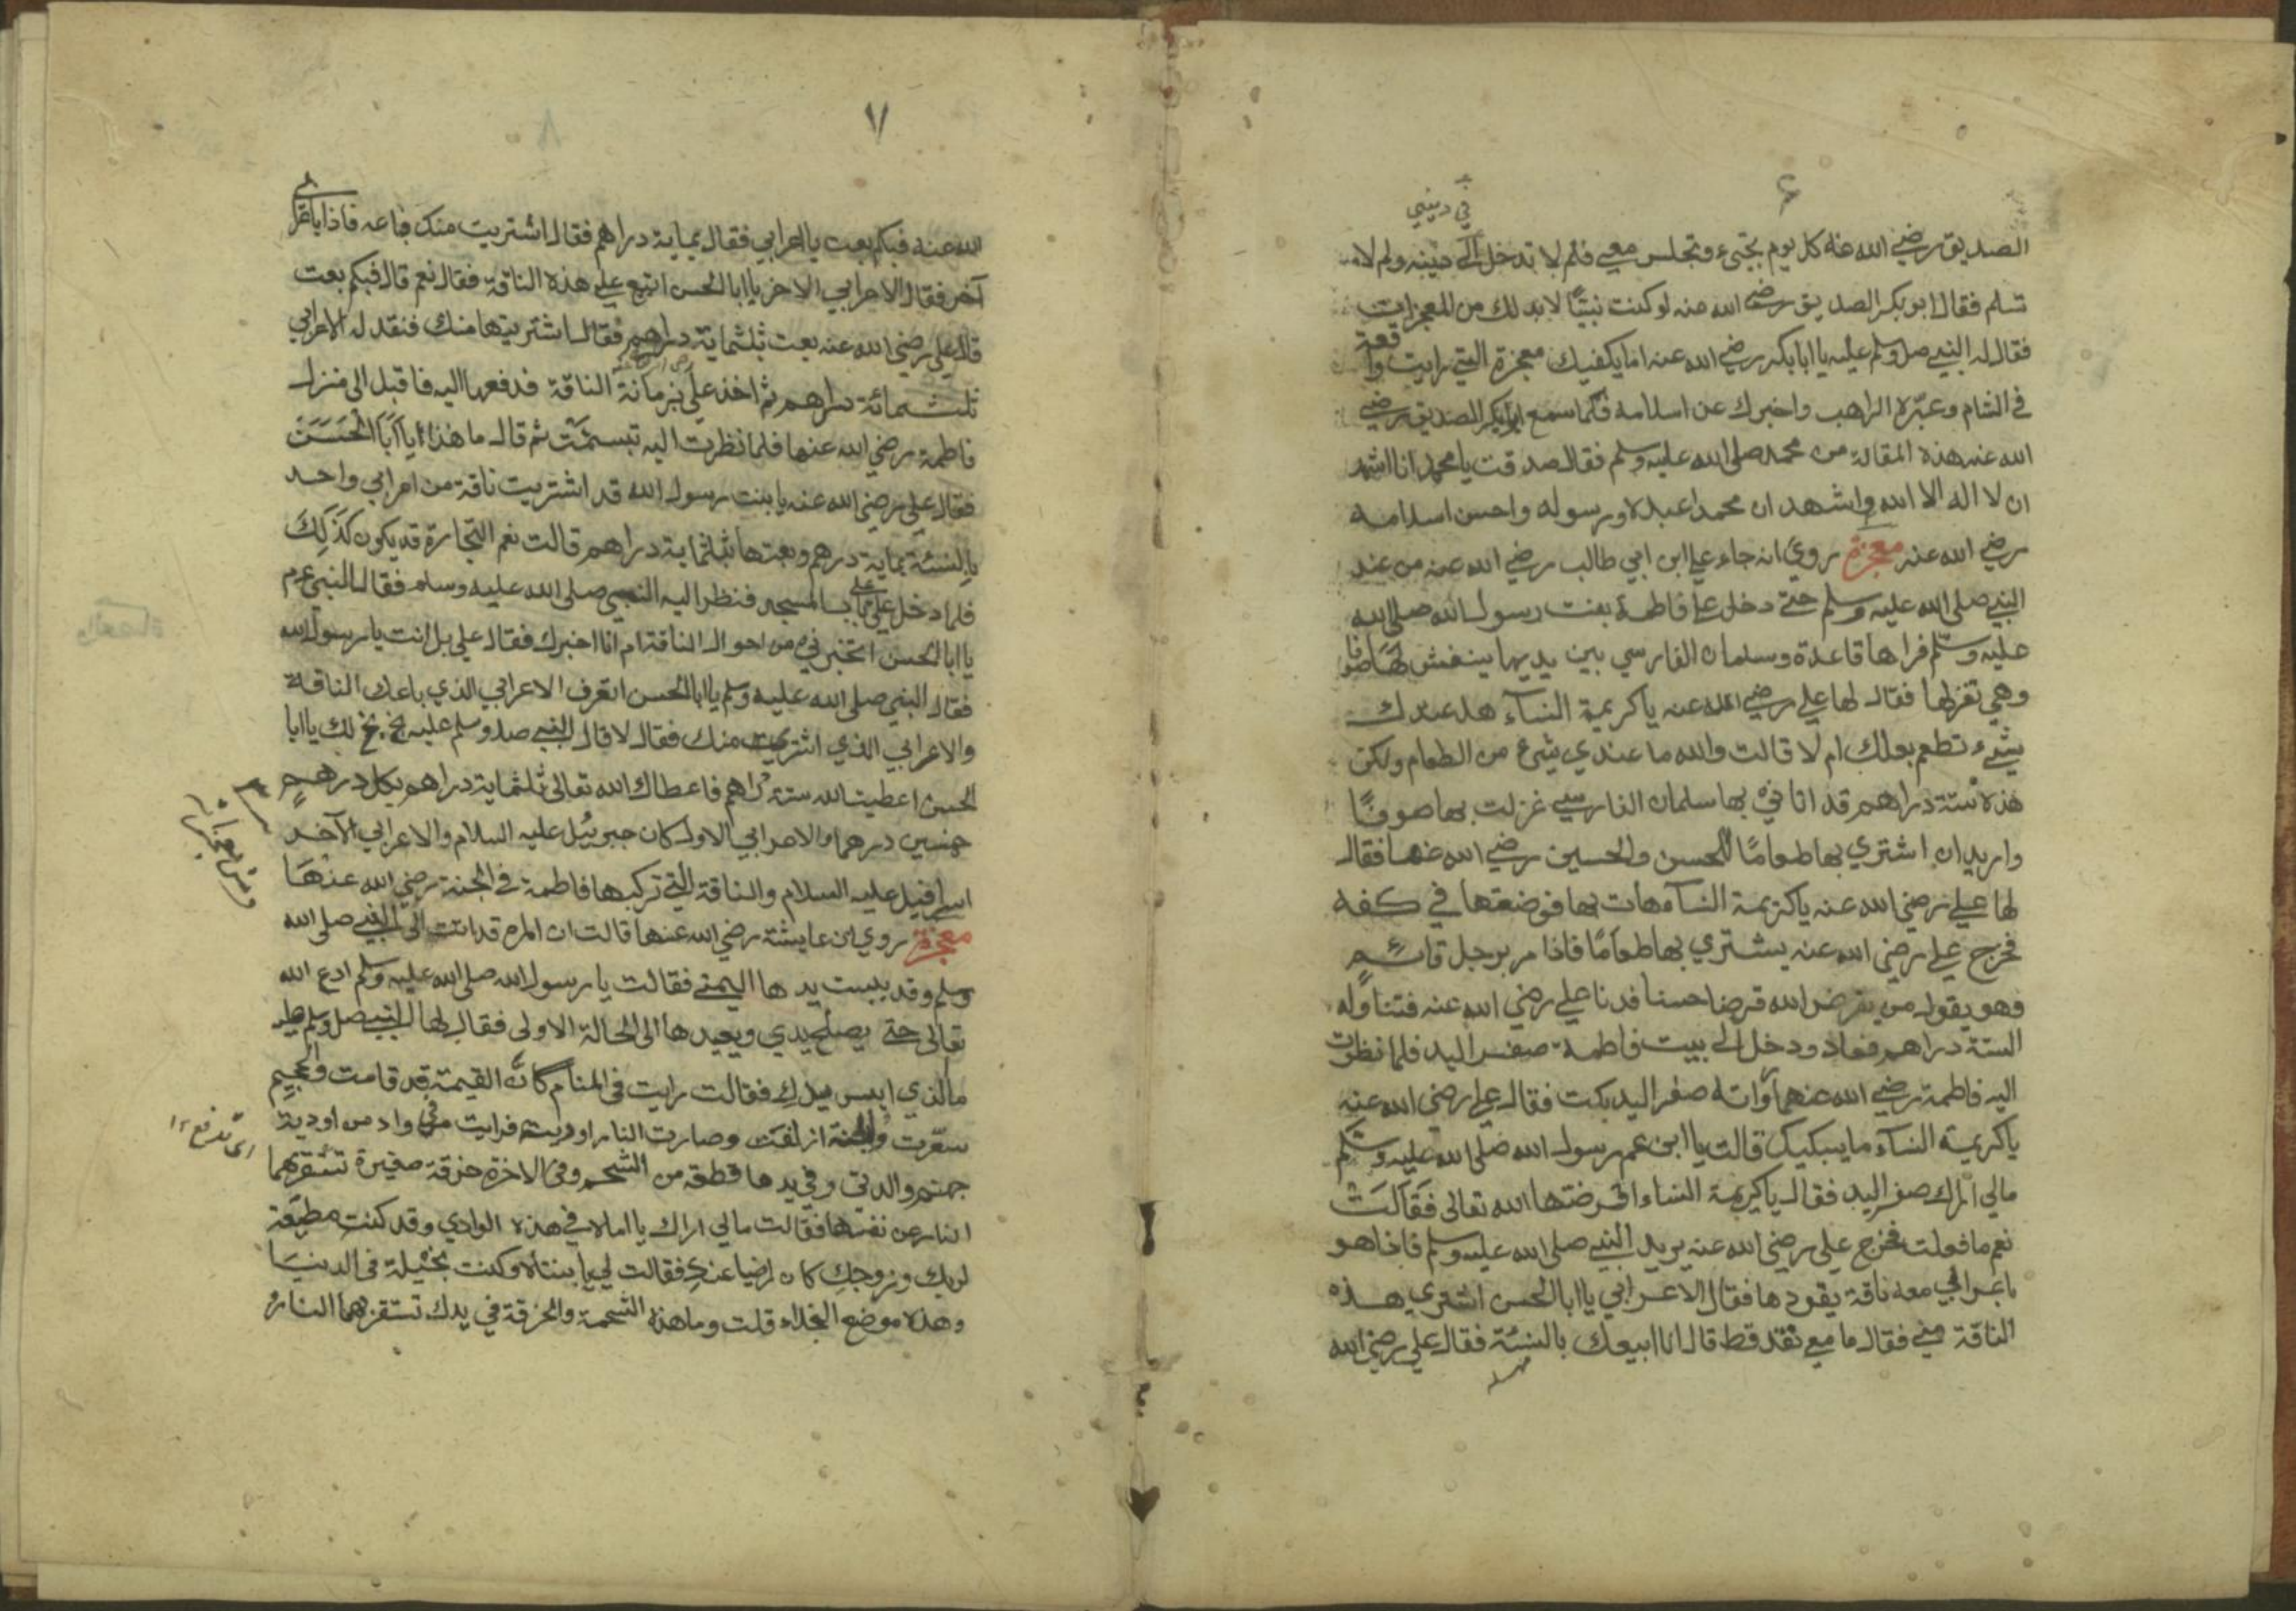 ٦
في ديني
الصديق رضي الله عنه كل يوم تجيء وتجلس معي فلم لا تدخل الى دينيه ولم لا
تسلم فقال ابو بكر الصديق رضي الله عنه لو كنت نبيًا لا بد لك من المعجزات
فقال له النبي صل وسلم عليه يا ابا بكر رضي الله عنه اما يكفيك معجزة التي رايت واقعة
في الشام وعبّره الراهب واخبرك عن اسلامه فلما سمع ابو بكر الصديق رضي
الله عنه هذه المقالة من محمد صلى الله عليه وسلم فقال صدقت يا محمد انا اشهد
ان لا اله الا الله واشهد ان محمدا عبده ورسوله واحسن اسلامه
رضي الله عنه معجزة روي انه جاء علي ابن ابي طالب رضي الله عنه من عند
النبي صلى الله عليه وسلم حتى دخل على فاطمة بنت رسول الله صلى الله
عليه وسلم فراها قاعدة وسلمان الفارسي بين يديها ينفش لها صوفا
وهي تغزلها فقال لها علي رضي الله عنه يا كريمة النساء هل عندك
شيء تطعم بعلك ام لا قالت والله ما عندي شيء من الطعام ولكن
هذه ستة دراهم قد اتاني بها سلمان الفارسي غزلت بها صوفًا
واريد ان اشتري بها طعامًا للحسن والحسين رضي الله عنهما فقال
لها علي رضي الله عنه يا كريمة النساء هات بها فوضعتها في كفه
فخرج علي رضي الله عنه يشتري بها طعامًا فاذا مر برجل قائم
وهو يقول من يقرض الله قرضا حسنا فدنا علي رضي الله عنه فتناوله
الستة دراهم فعاد ودخل الى بيت فاطمة صفر اليد فلما نظرت
اليه فاطمة رضي الله عنهما واته صفر اليد بكت فقال علي رضي الله عنه
يا كريمة النساء ما يبكيك قالت يا ابن عم رسول الله صلى الله عليه وسلم
مالي اراك صفر اليد فقال يا كريمة النساء اقرضتها الله تعالى فقالت
نعم ما فعلت فخرج علي رضي الله عنه يريد النبي صلى الله عليه وسلم فاذا هو
باعرابي معه ناقة يقودها فقال الاعرابي يا ابا الحسن اشتري هذه
الناقة مني فقال ما معي نقد قط قال انا ابيعك بالنسئة فقال علي رضي الله
٧
٨
الله عنه فبكم بعت يا اعرابي فقال بماية دراهم فقال اشتريت منك فباعه فاذا باعرابي
آخر فقال الاعرابي الاخر يا ابا الحسن اتبيع علي هذه الناقة فقال نعم قال فبكم بعت
قال علي رضي الله عنه بعت بثلثماية دراهم فقال اشتريتها منك فنقد له الاعرابي
ثلثمائة دراهم ثم اخذ علي بزمانة الناقة فدفعها اليه فاقبل الى منزل
فاطمة رضي الله عنها فلما نظرت اليه تبسمت ثم قال ما هذا يا ابا الحسن
فقال علي رضي الله عنه يا بنت رسول الله قد اشتريت ناقة من اعرابي واحد
بالنسئة بماية درهم وبعتها بثلثماية دراهم قالت نعم التجارة قد يكون كذلك
فلما دخل علي باب المسجد فنظر اليه النبي صلى الله عليه وسلم فقال النبي عم
يا ابا الحسن اتخبرني من احوال الناقة ام انا اخبرك فقال علي بل انت يا رسول الله
فقال النبي صلى الله عليه وسلم يا ابا الحسن اتعرف الاعرابي الذي باعك الناقة
والاعرابي الذي اشتريت منك فقال لا قال النبي صل وسلم عليه بخ بخ لك يا ابا
الحسن اعطيت لله ستة دراهم فاعطاك الله تعالى ثلثماية دراهم بكل درهم
خمسين درهما والاعرابي الاول كان جبرئيل عليه السلام والاعرابي الآخر
اسرافيل عليه السلام والناقة التي تركبها فاطمة في الجنة رضي الله عنها
معجزة روي ان عايشة رضي الله عنها قالت ان امراة قد اتت الى النبي صلى الله
وسلم وقد يبست يدها اليمنى فقالت يا رسول الله صلى الله عليه وسلم ادع الله
تعالى حتى يصلح يدي ويعيدها الى الحالة الاولى فقال لها النبي صل وسلم عليه
ما الذي ايبس يدك فقالت رايت في المنام كانّ القيمة قد قامت والجحيم
سعّرت والجنة ازلفت وصارت النار اودية فرايت في واد من اودية
جهنم والدتي وفي يدها قطعة من الشحم وفي الاخرة خرقة صغيرة تستقربهما
النار عن نفسها فقالت مالي اراك يا اماه في هذه الوادي وقد كنت مطيعة
لربك وزوجك كان راضيا عنك فقالت لي يا بنتاه وكنت بخيلة في الدنيا
وهذه موضع البخلاء قلت وما هذه الشحمة والخرقة في يدك تستقربهما النار
اى تدفع ١٢